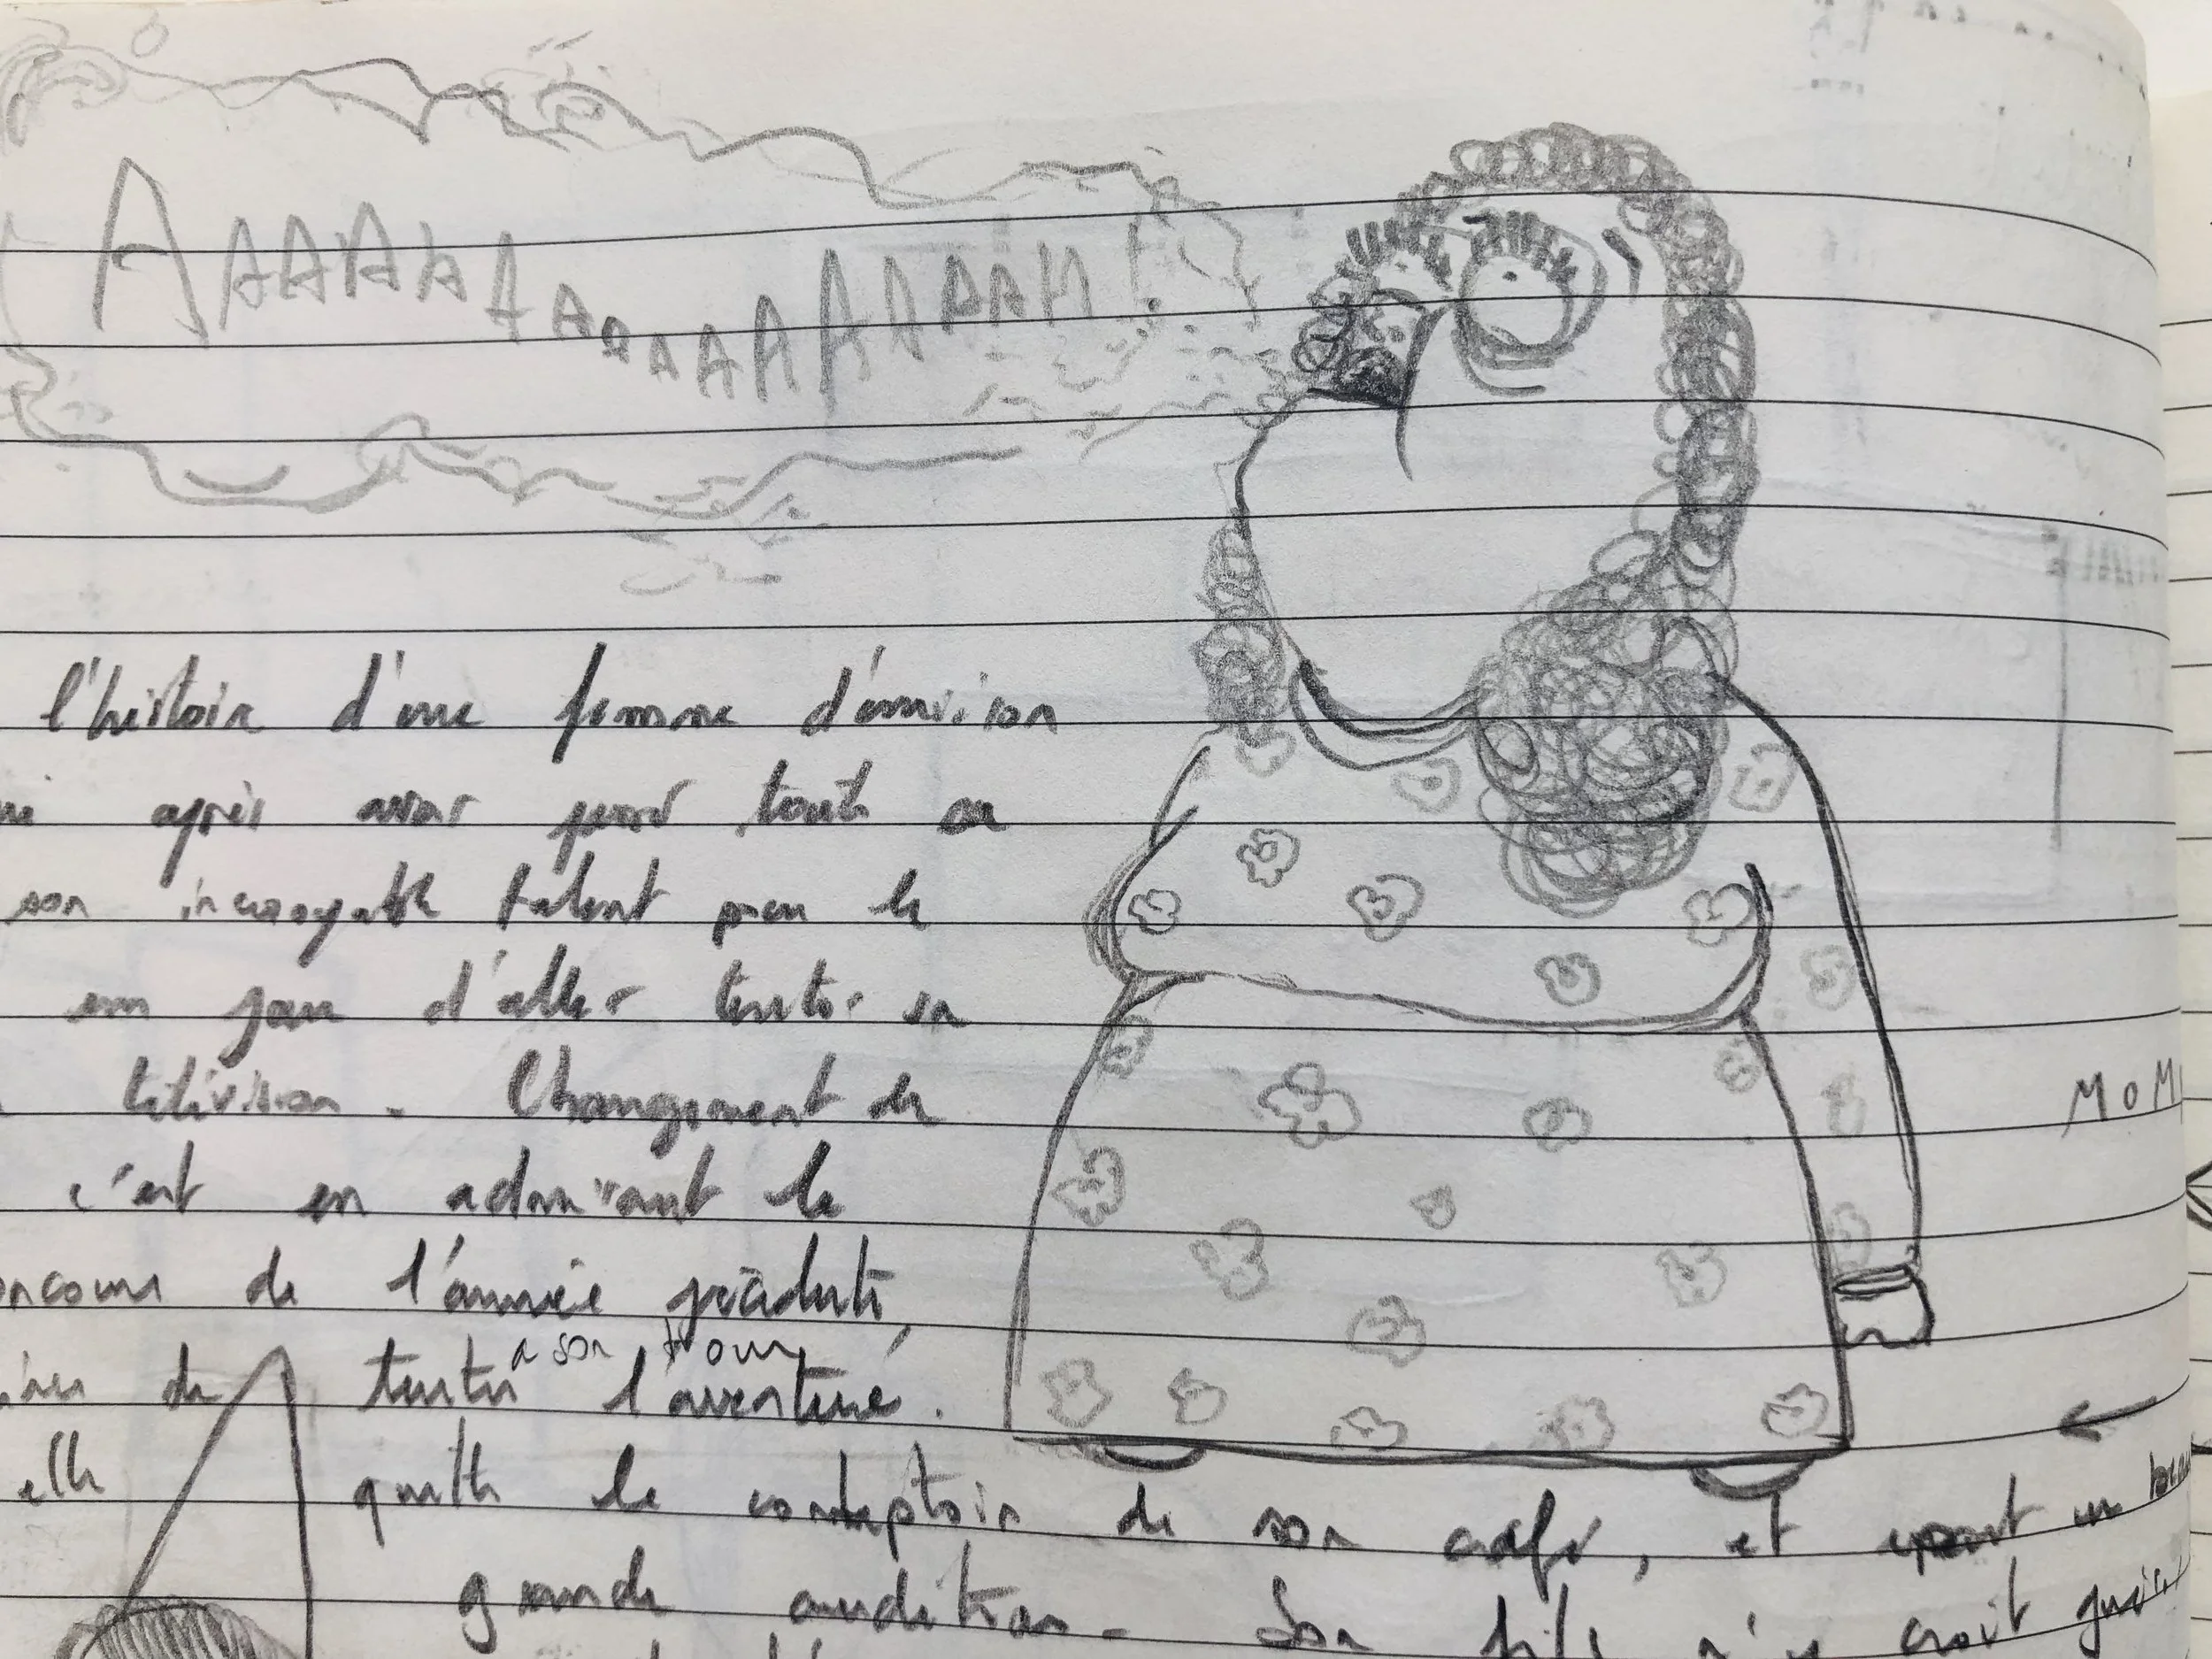 AAAAAAAAAAAAAAAAAH!
l'histoire d'une femme d'environ
après avoir perdu toute sa
son incroyable talent pour le
un jour d'aller tenter sa
télévision. Changement de
c'est en admirant le
concours de l'année précédente,
de tenter à son tour l'aventure.
elle quitte le comptoir de son café, et un
grande audition. Son fils n'y croit
MOM